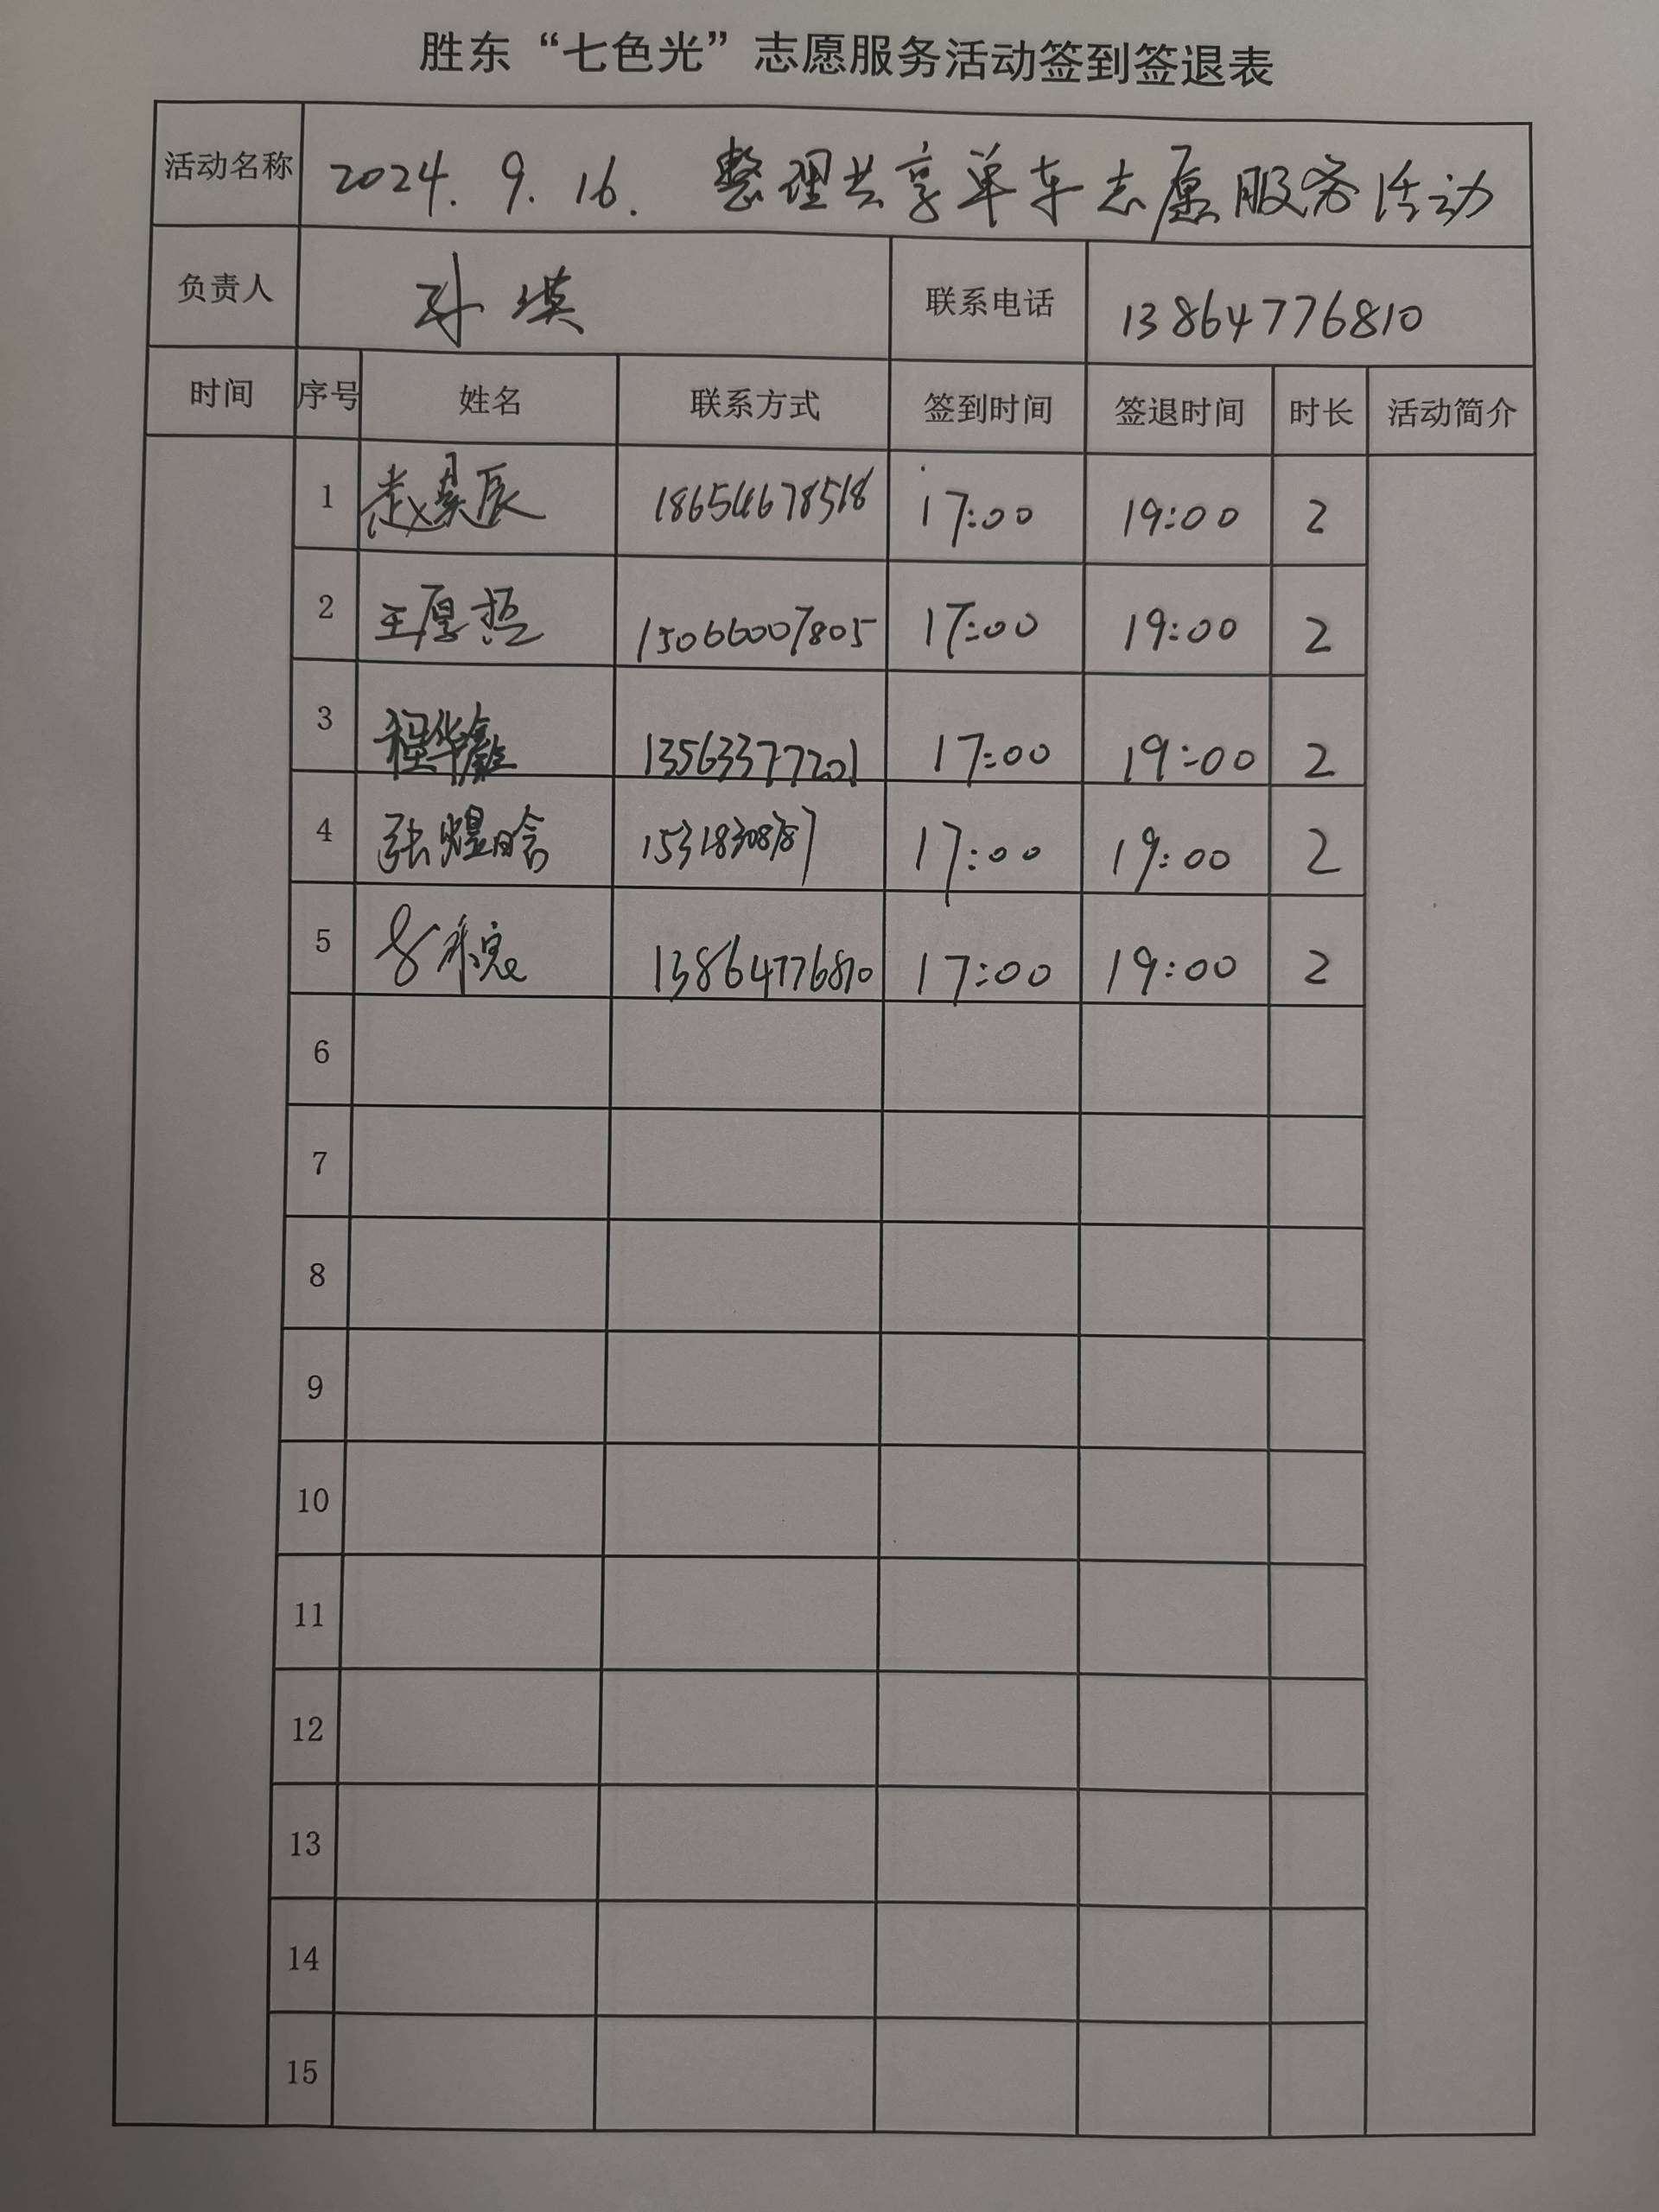 胜东“七色光”志愿服务活动签到签退表
活动名称 2024.9.16. 整理共享单车志愿服务活动
负责人 孙瑛 联系电话 13864776810
时间 序号 姓名 联系方式 签到时间 签退时间 时长 活动简介
1 赵昊辰 18654678518 17:00 19:00 2
2 王厚哲 15066007805 17:00 19:00 2
3 程华鑫 13563377201 17:00 19:00 2
4 张煜晗 17:00 19:00 2
5 13864776810 17:00 19:00 2
6
7
8
9
10
11
12
13
14
15